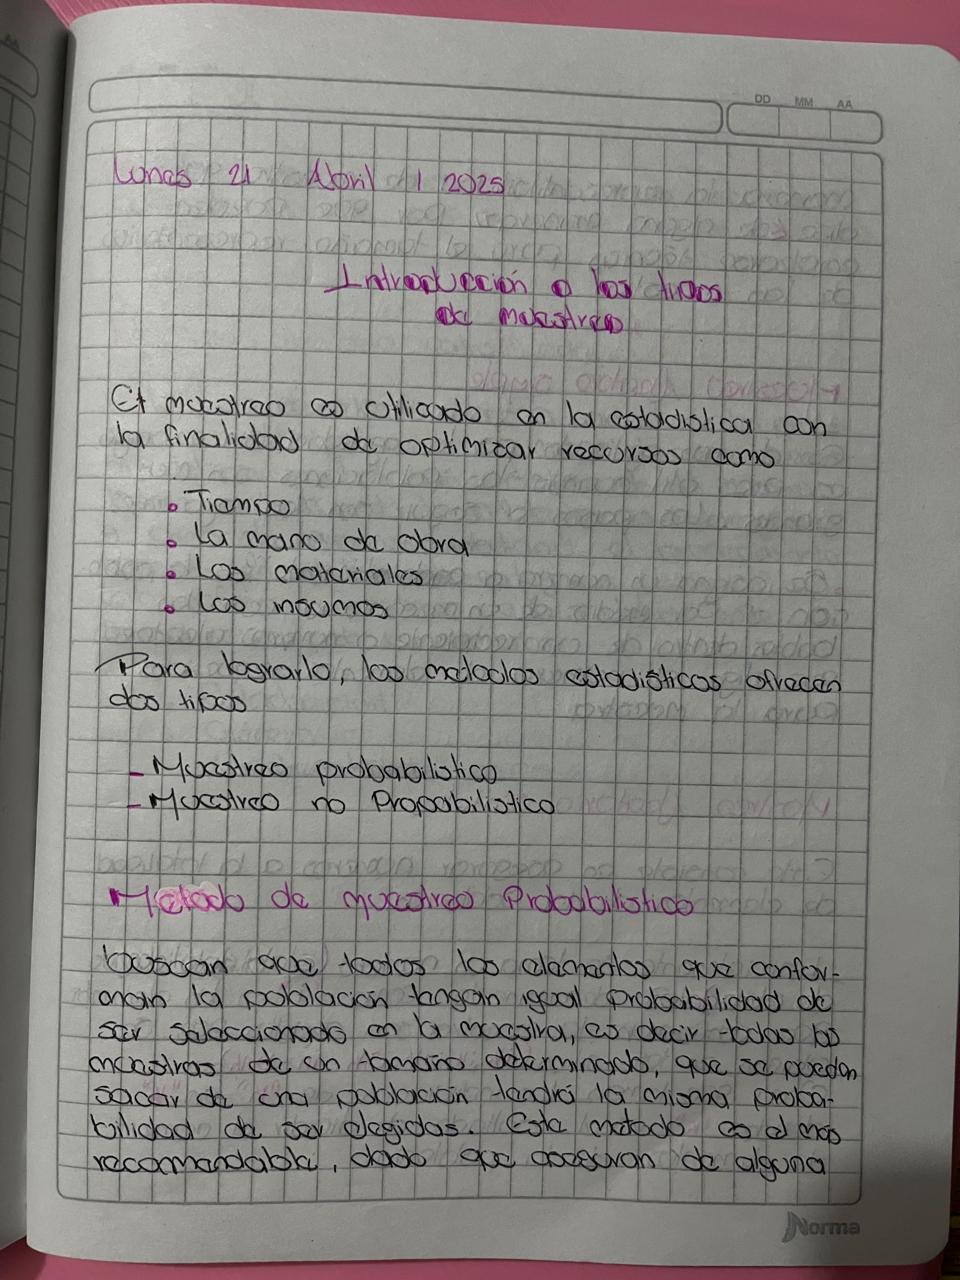 DD MM AA
Lunes 21 Abril | 2025
Introducción a los tipos
de muestreo
El muestreo es utilicado en la estadistica con
la finalidad de optimizar recursos como
• Tiempo
• La mano de obra
• Los materiales
• Los insumos
Para lograrlo, los metodos estadisticos ofrecen
dos tipos
- Muestreo probabilistico
- Muestreo no Propabilistico
Metodo de muestreo Probabilistico
buscan que todos los elementos que confor-
man la poblacion tengan igual probabilidad de
ser seleccionado en la muestra, es decir todas las
muestras de un tamano determinado, que se puedan
sacar de una poblacion tendrá la misma proba-
bilidad de ser elegidas. Este metodo es el mas
recomendable, dado que aseguran de alguna
Norma